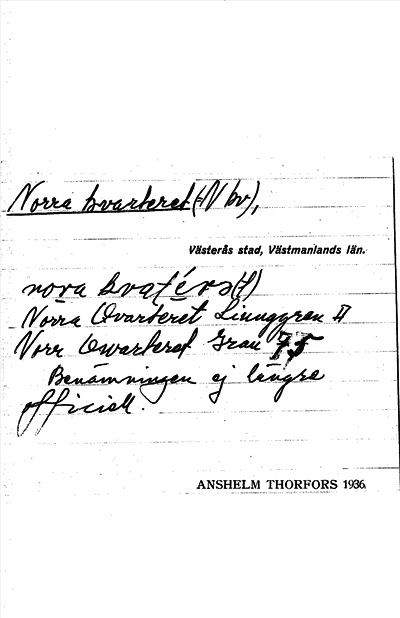 Norra kvarteret (-N kv),
Västerås stad, Västmanlands län.
nora kvatérə(t)
Norra Qvarteret Linngyren II
Norr Qwarteret Grau 75
Benämningen ej längre
officiell.
ANSHELM THORFORS 1936.